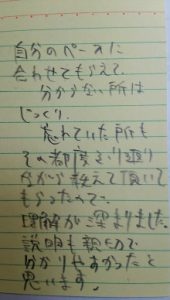 自分のペースに
合わせてもらえて、
分からない所は
じっくり、
忘れていた所も
その都度ふり返り
ながら教えて頂いて
もらったので、
理解が深まりました。
説明も親切で
分かりやすかったと
思います。